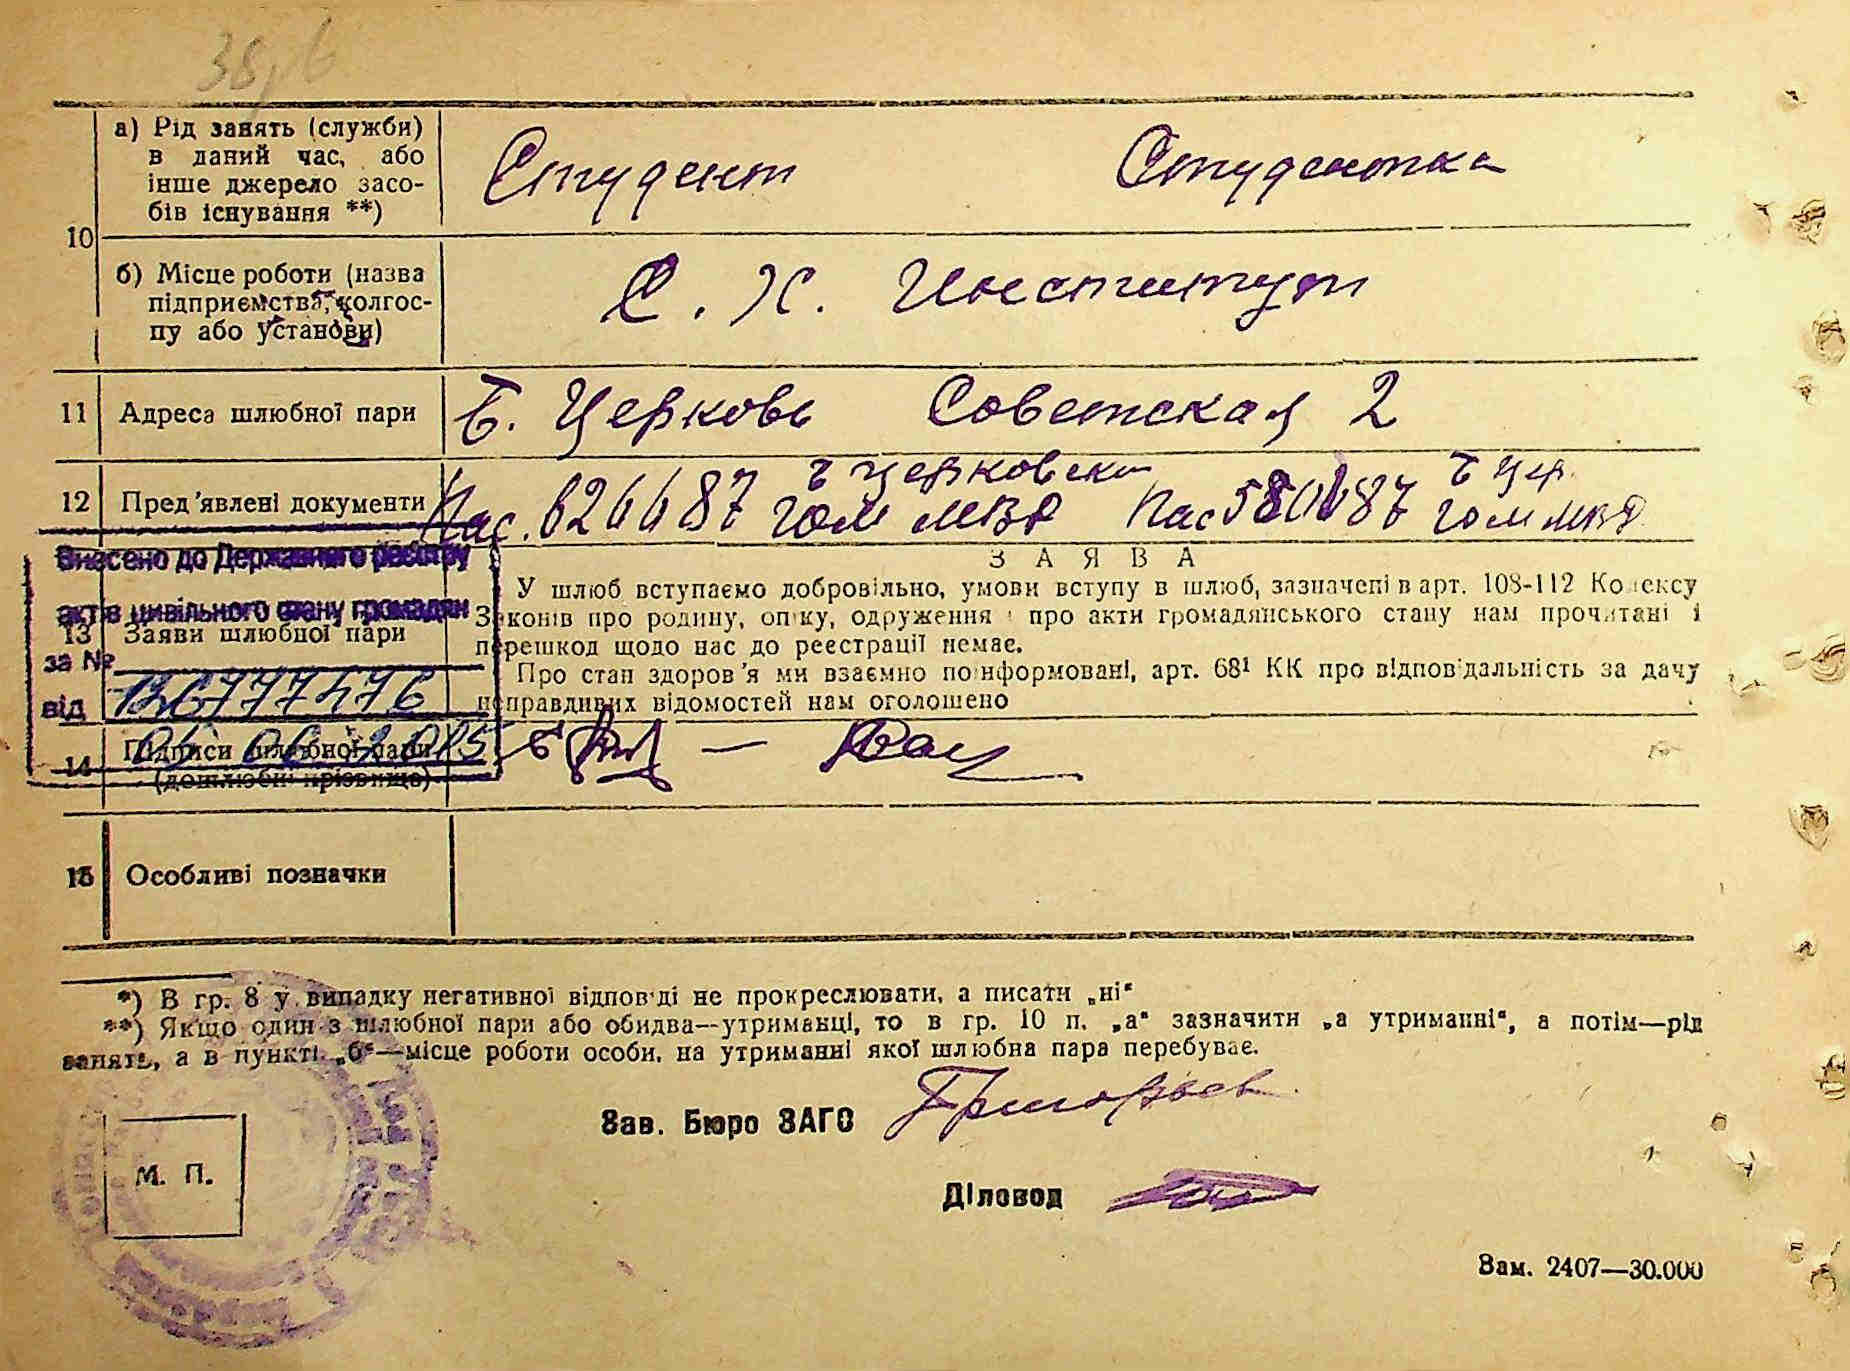 38, б
10
а) Рід занять (служби)
в даний час, або
інше джерело засо-
бів існування **)
Студент Студентка
б) Місце роботи (назва
підприємства, колгос-
пу або установи)
С. Х. Институт
11 Адреса шлюбної пари Б. Церковь Советская 2
Б Церковски Б Цер.
12 Пред'явлені документи Пас. 626487 ГОМ МВД Пас 580487 ГОМ МВД
ЗАЯВА
Внесено до Державного реєстру
актів цивільного стану громадян
за №
від
05 06 2015
13 Заяви шлюбної пари
У шлюб вступаємо добровільно, умови вступу в шлюб, зазначені в арт. 108-112 Кодексу
Законів про родину, опіку, одруження і про акти громадянського стану нам прочитані і
перешкод щодо нас до реєстрації немає.
Про стан здоров'я ми взаємно поінформовані, арт. 68¹ КК про відповідальність за дачу
неправдивих відомостей нам оголошено
14 Підписи шлюбної пари
(дошлюбні прізвища)
15 Особливі позначки
*) В гр. 8 у випадку негативної відповіді не прокреслювати, а писати „ні“
**) Якщо один з шлюбної пари або обидва—утриманці, то в гр. 10 п. „а“ зазначити „а утриманні“, а потім—рід
занять, а в пункті „б“—місце роботи особи, на утриманні якої шлюбна пара перебуває.
Зав. Бюро ЗАГС Григорьев
М. П.
Діловод
Зам. 2407—30.000